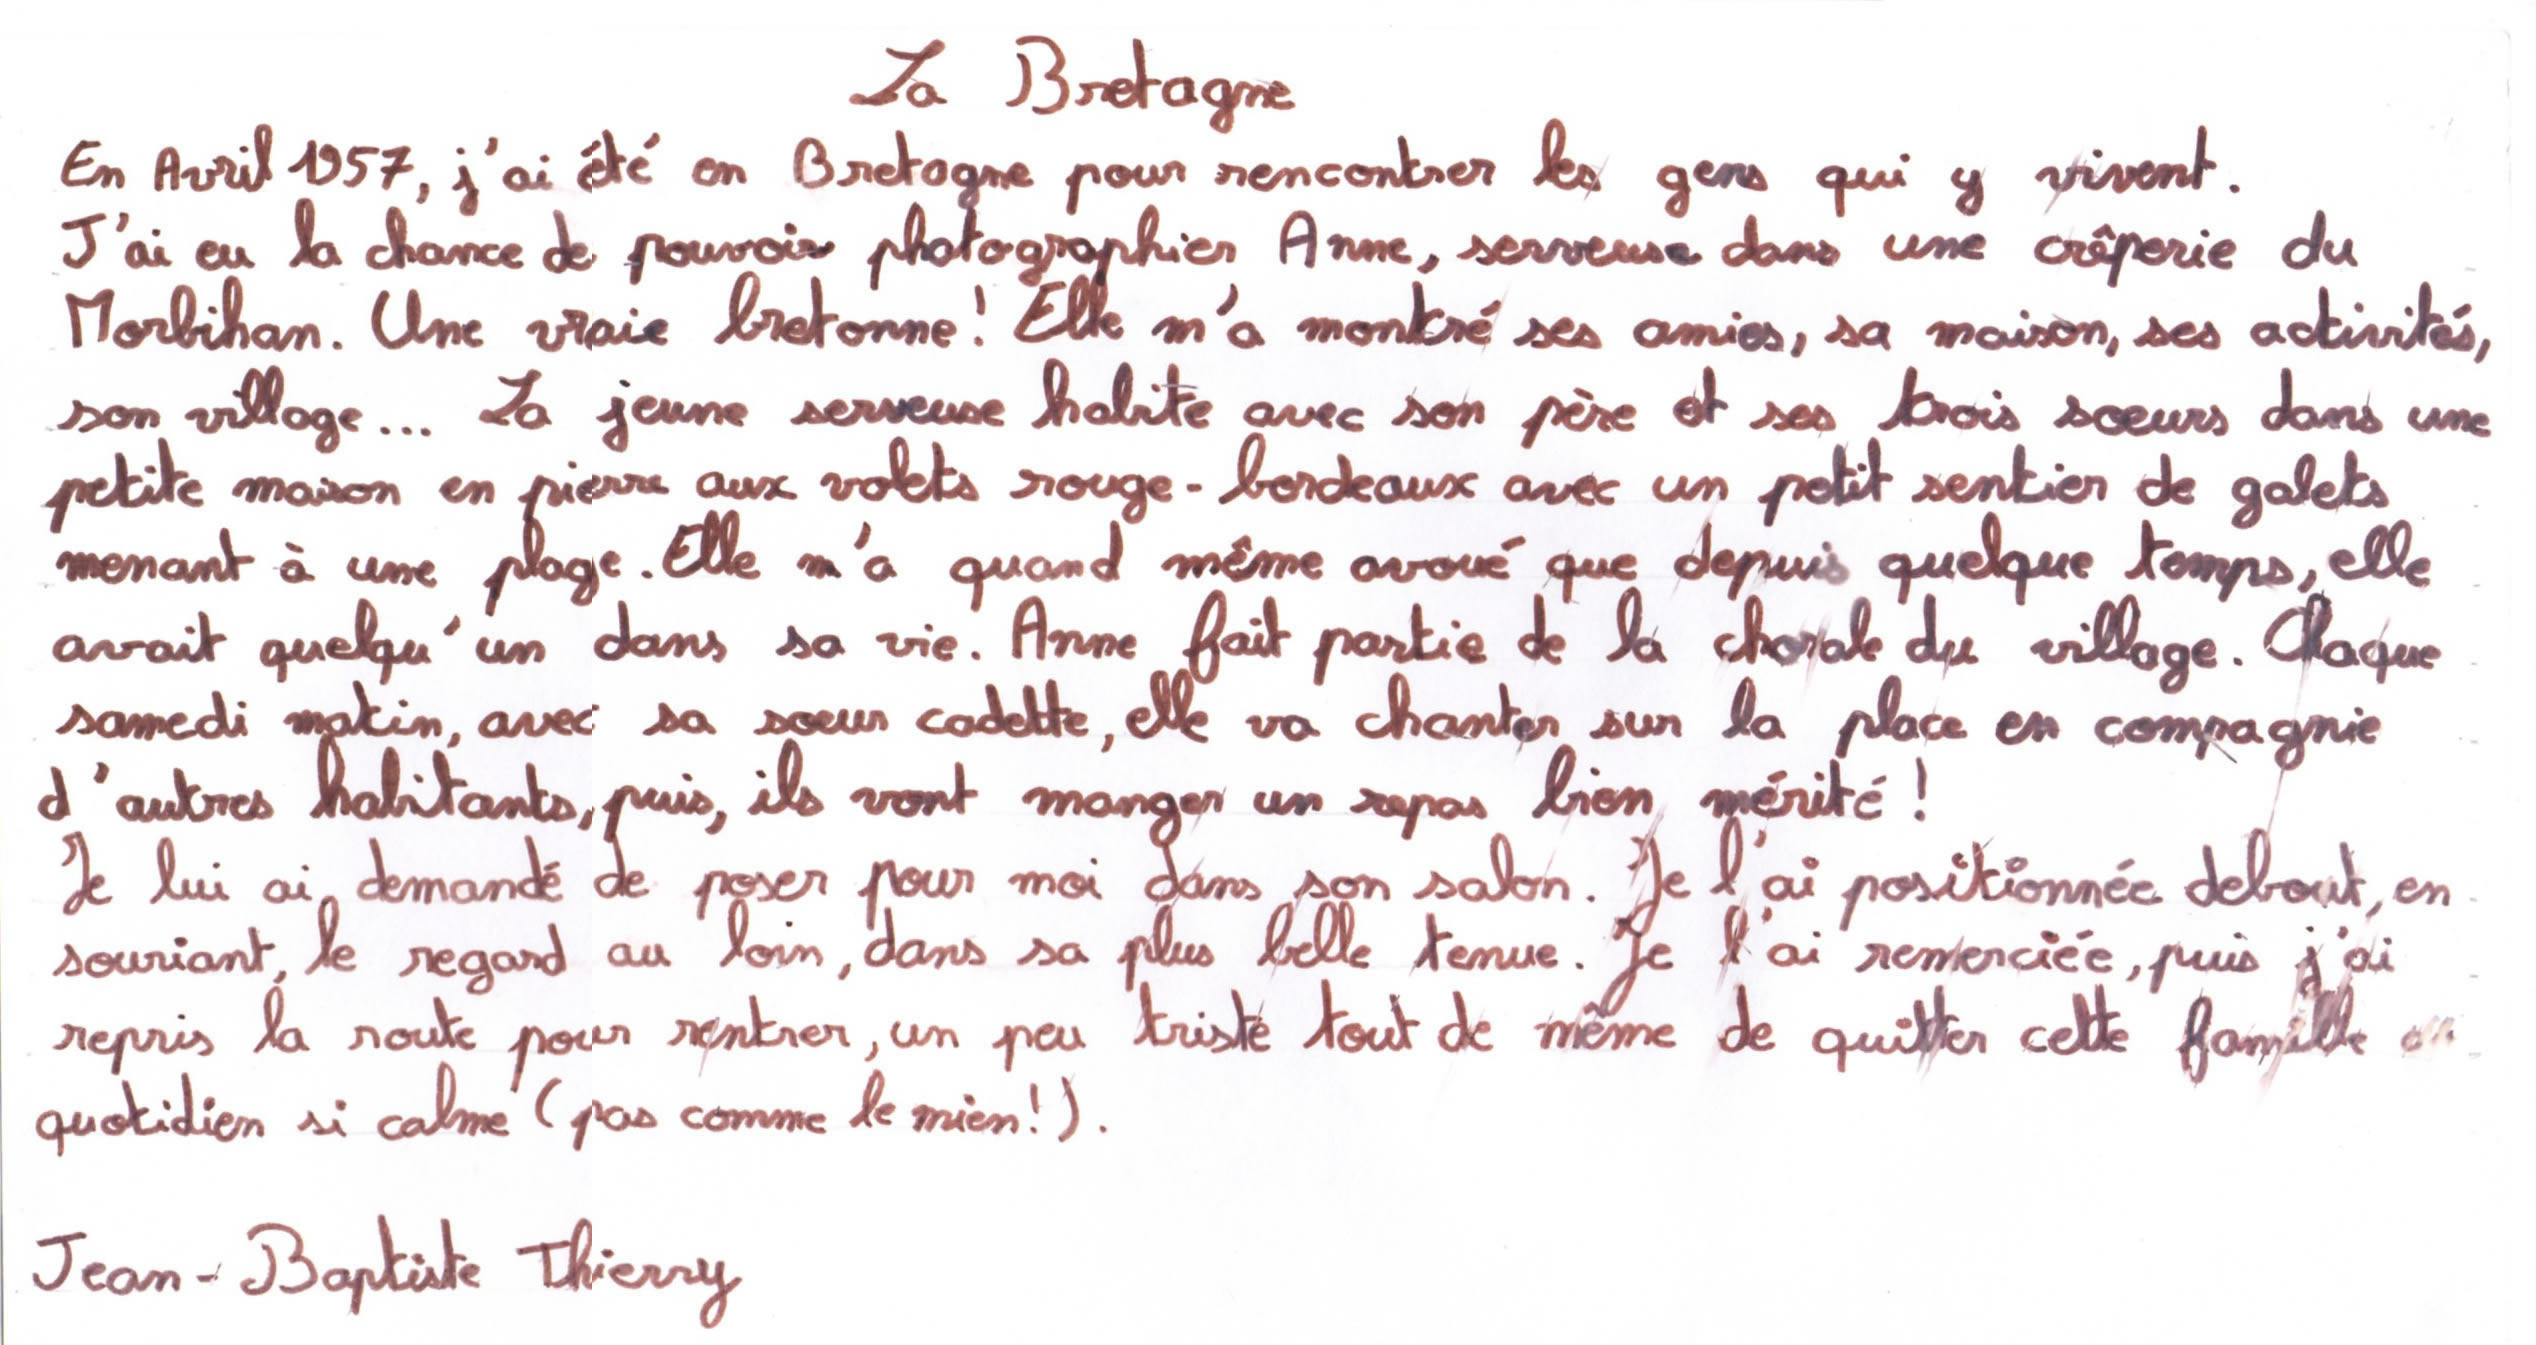 La Bretagne
En Avril 1957, j'ai été en Bretagne pour rencontrer les gens qui y vivent.
J'ai eu la chance de pouvoir photographier Anne, serveuse dans une crêperie du
Morbihan. Une vraie bretonne! Elle m'a montré ses amies, sa maison, ses activités,
son village... La jeune serveuse habite avec son père et ses trois soeurs dans une
petite maison en pierre aux volets rouge-bordeaux avec un petit sentier de galets
menant à une plage. Elle m'a quand même avoué que depuis quelque temps, elle
avait quelqu'un dans sa vie. Anne fait partie de la chorale du village. Chaque
samedi matin, avec sa soeur cadette, elle va chanter sur la place en compagnie
d'autres habitants, puis, ils vont manger un repas bien mérité!
Je lui ai demandé de poser pour moi dans son salon. Je l'ai positionnée debout, en
souriant, le regard au loin, dans sa plus belle tenue. Je l'ai remerciée, puis j'ai
repris la route pour rentrer, un peu triste tout de même de quitter cette famille
quotidien si calme (pas comme le mien!).
Jean-Baptiste Thierry